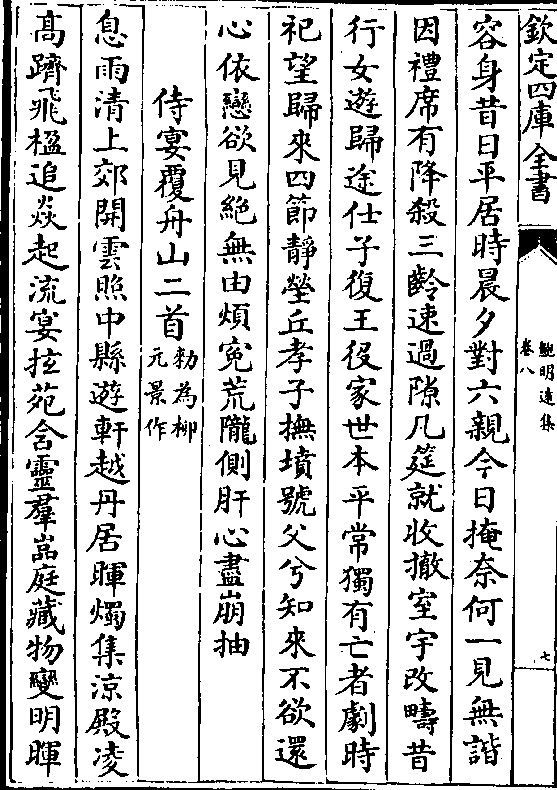 欽定四庫全書
鮑明遠集
卷八
七
容身昔日平居時晨夕對六親今日掩奈何一見無諧
因禮席有降殺三齡速過隙几筵就收撤室宇改疇昔
行女遊歸途仕子復王役家世本平常獨有亡者劇時
祀望歸來四節靜塋丘孝子撫墳號父兮知來不欲還
心依戀欲見絶無由煩寃荒隴側肝心盡崩抽
侍宴覆舟山二首
勑為柳
元景作
息雨清上郊開雲照中縣遊軒越丹居暉燭集涼殿凌
髙躋飛楹追焱起流宴抂苑含靈羣峝庭藏物變明暉